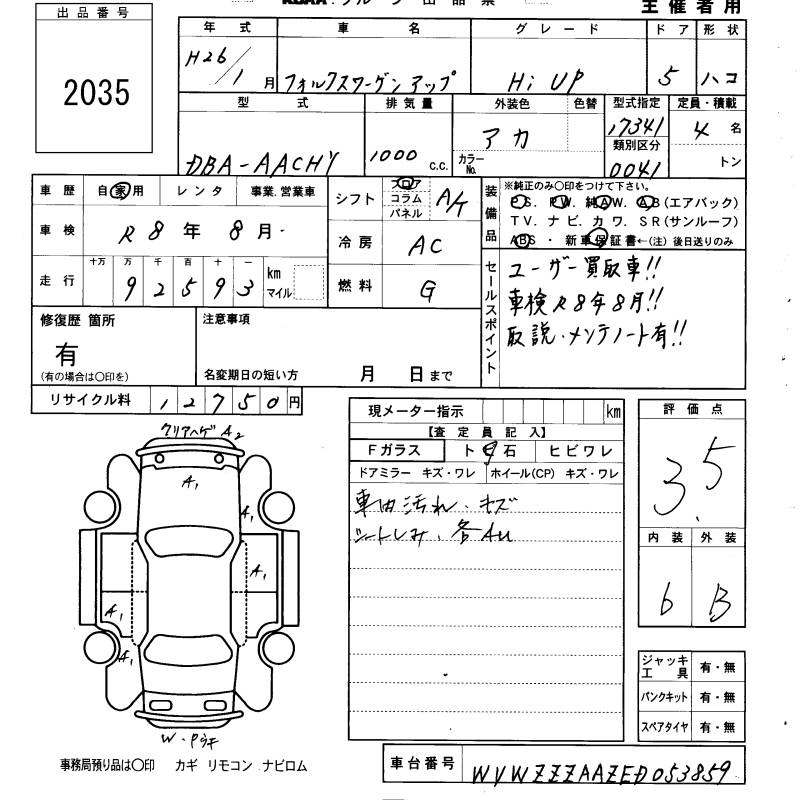 出品番号
2035
主催者用
年式 車名 グレード ドア 形状
H26/1月 フォルクスワーゲンアップ Hi UP 5 ハコ
型式 排気量 外装色 色替 型式指定 定員・積載
DBA-AACHY 1000 c.c. アカ 17341 4名
カラーNo. 類別区分 0041 トン
車歴 自家用 レンタ 事業.営業車
車検 R8年8月
走行 十万 万 千 百 十 一
92593 km マイル
シフト フロア コラム パネル A/T
冷房 AC
燃料 G
装備品
※純正のみ〇印をつけて下さい。
P.S. P.W. 純A.W. A.B(エアバック)
T.V. ナビ. カワ. SR(サンルーフ)
ABS・新車保証書←(注)後日送りのみ
セールスポイント
ユーザー買取車!!
車検R8年8月!!
取説.メンテノート有!!
修復歴 箇所
有
(有の場合は〇印を)
注意事項
名変期日の短い方 月 日まで
リサイクル料 12750円
クリアハゲA2
A1
A1
A1
A1
A1
W・Pウキ
事務局預り品は〇印 カギ リモコン ナビロム
現メーター指示 km
【査定員記入】
Fガラス トビ石 ヒビワレ
ドアミラー キズ・ワレ ホイール(CP) キズ・ワレ
車内汚れ.キズ
シートしみ.各AU
評価点
3.5
内装 外装
6 B
ジャッキ工具 有・無
パンクキット 有・無
スペアタイヤ 有・無
車台番号 WVWZZZAAZED053859